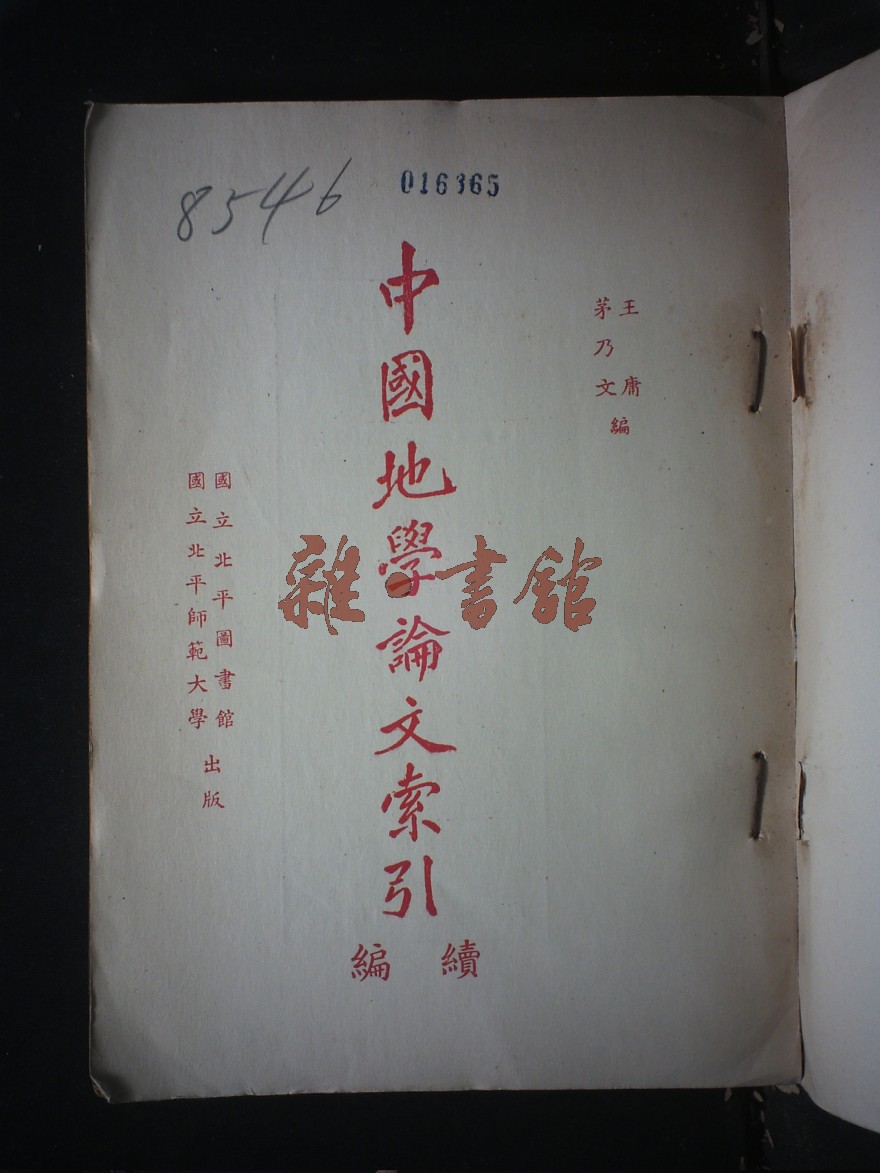 8546
016365
王庸
茅乃文
編
中國地學論文索引
續編
國立北平圖書館
國立北平師範大學
出版
雜·書館